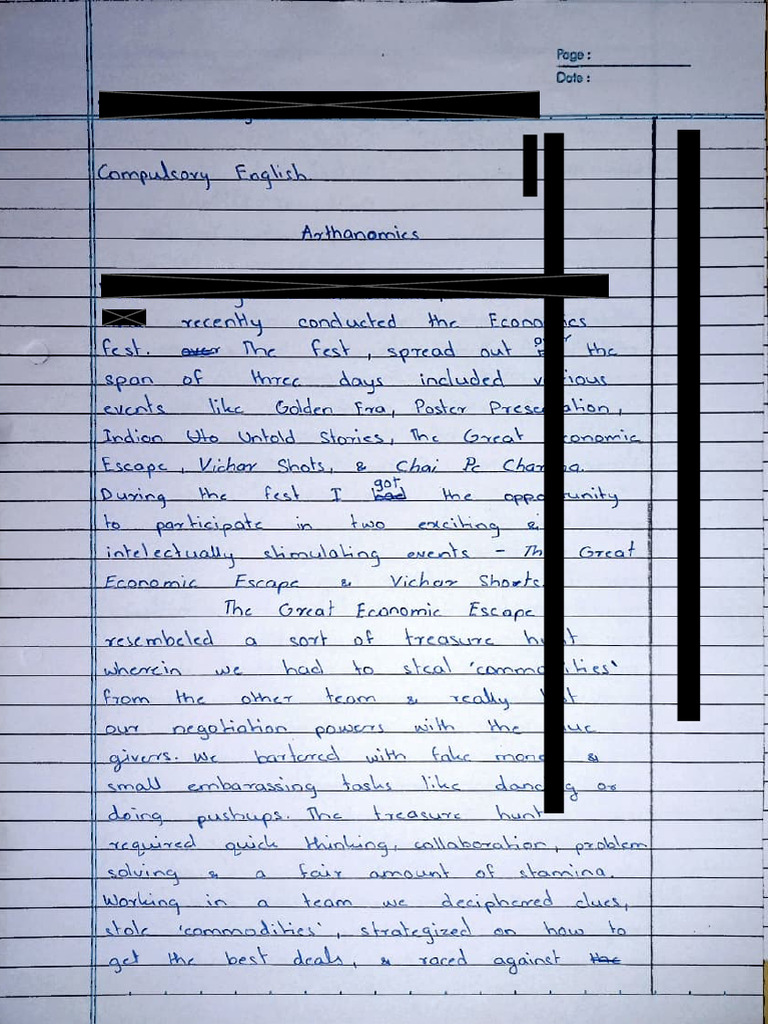 Page :
Date :
Compulsory English
Arthanomics
recently conducted the Economics
fest. over The fest, spread out over the
span of three days included various
events like Golden Era, Poster Presentation,
Indian Uto Untold Stories, The Great Economic
Escape, Vichar Shots, & Chai Pe Charcha.
During the fest I had got the opportunity
to participate in two exciting &
intelectually stimulating events - The Great
Economic Escape & Vichar Shorts.
The Great Economic Escape
resembeled a sort of treasure hunt
wherein we had to steal 'commodities'
from the other team & really
our negotiation powers with the clue
givers. We bartered with fake money &
small embarassing tasks like dancing or
doing pushups. The treasure hunt
required quick thinking, collaboration, problem
solving & a fair amount of stamina.
Working in a team we deciphered clues,
stole 'commodities', strategized on how to
get the best deals, & raced against the